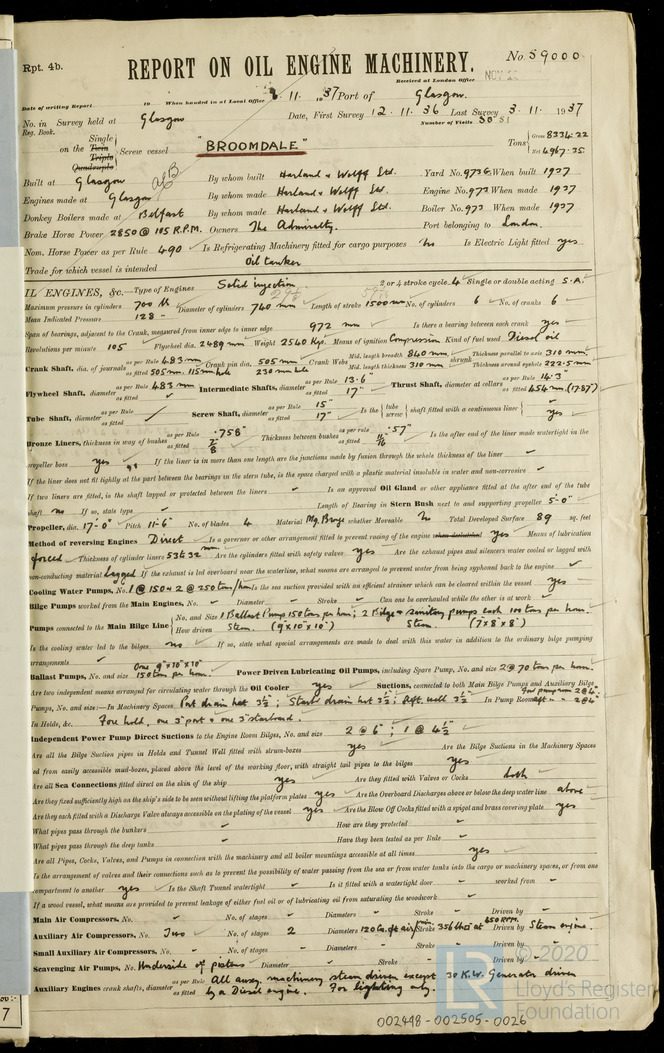 Rpt. 4b.
REPORT ON OIL ENGINE MACHINERY.
No. 59000
Received at London Office
NOV
Date of writing Report 19 When handed in at Local Office 11. 1937 Port of Glasgow.
No. in Survey held at Glasgow Date, First Survey 12. 11. 36 Last Survey 3. 11. 1937
Reg. Book. Number of Visits
on the Single Twin Triple Quadruple Screw vessel "BROOMDALE" Tons Gross 8334.22 Net 4967.35
Built at Glasgow By whom built Harland & Wolff Ltd. Yard No. 973G When built 1937
Engines made at Glasgow By whom made Harland & Wolff Ltd. Engine No. 973 When made 1937
Donkey Boilers made at Belfast By whom made Harland & Wolff Ltd. Boiler No. 973 When made 1937
Brake Horse Power 2850 @ 105 R.P.M. Owners The Admiralty. Port belonging to London.
Nom. Horse Power as per Rule 490 Is Refrigerating Machinery fitted for cargo purposes no Is Electric Light fitted yes
Trade for which vessel is intended Oil tanker
IL ENGINES, &c. Type of Engines Solid injection 2 or 4 stroke cycle 4 Single or double acting S.A.
Maximum pressure in cylinders 700 lb Diameter of cylinders 740 mm Length of stroke 1500 mm No. of cylinders 6 No. of cranks 6
Mean Indicated Pressure 128
Span of bearings, adjacent to the Crank, measured from inner edge to inner edge 972 mm Is there a bearing between each crank yes
Revolutions per minute 105 Flywheel dia. 2489 mm Weight 2540 Kgs. Means of ignition Compression Kind of fuel used Diesel oil
Crank Shaft, dia. of journals as per Rule 483 mm as fitted 505 mm. 115 mm hole Crank pin dia. 505 mm. 230 mm hole Crank Webs Mid. length breadth 840 mm Mid. length thickness 310 mm shrunk Thickness parallel to axis 310 mm. Thickness around eyehole 222.5 mm
Flywheel Shaft, diameter as per Rule 483 mm as fitted Intermediate Shafts, diameter as per Rule 13.6" as fitted 17" Thrust Shaft, diameter at collars as per Rule 14.3" as fitted 454 mm. (17.87")
Tube Shaft, diameter as per Rule as fitted Screw Shaft, diameter as per Rule 15" as fitted 17" Is the tube screw shaft fitted with a continuous liner yes
Bronze Liners, thickness in way of bushes as per Rule .758" as fitted 7/8" Thickness between bushes as per rule .57" as fitted Is the after end of the liner made watertight in the
propeller boss yes If the liner is in more than one length are the junctions made by fusion through the whole thickness of the liner
If the liner does not fit tightly at the part between the bearings in the stern tube, is the space charged with a plastic material insoluble in water and non-corrosive
If two liners are fitted, is the shaft lapped or protected between the liners Is an approved Oil Gland or other appliance fitted at the after end of the tube
shaft no If so, state type Length of Bearing in Stern Bush next to and supporting propeller 5'-0"
Propeller, dia. 17'-0" Pitch 11'-6" No. of blades 4 Material Mg. Bronze whether Moveable no Total Developed Surface 89 sq. feet
Method of reversing Engines Direct Is a governor or other arrangement fitted to prevent racing of the engine when declutched yes Means of lubrication
forced Thickness of cylinder liners 53 & 32 mm Are the cylinders fitted with safety valves yes Are the exhaust pipes and silencers water cooled or lagged with
non-conducting material Lagged If the exhaust is led overboard near the waterline, what means are arranged to prevent water from being syphoned back to the engine
Cooling Water Pumps, No. 1 @ 150 & 2 @ 250 tons/hour Is the sea suction provided with an efficient strainer which can be cleared within the vessel yes
Bilge Pumps worked from the Main Engines, No. Diameter Stroke Can one be overhauled while the other is at work
Pumps connected to the Main Bilge Line No. and Size 1 Ballast Pump 150 tons per hour; 2 Bilge & sanitary pumps each 100 tons per hour.
How driven Steam. (9" x 10" x 10") Steam. (7" x 8" x 8")
Is the cooling water led to the bilges no If so, state what special arrangements are made to deal with this water in addition to the ordinary bilge pumping
arrangements
Ballast Pumps, No. and size One 9" x 10" x 10" 150 tons per hour. Power Driven Lubricating Oil Pumps, including Spare Pump, No. and size 2 @ 70 tons per hour.
Are two independent means arranged for circulating water through the Oil Cooler yes Suctions, connected to both Main Bilge Pumps and Auxiliary Bilge
Pumps, No. and size:—In Machinery Spaces Port drain hat 3½"; Starb'd drain hat 3½"; Aft. well 3½ In Pump Room For pump room 2 @ 4". aft " " 2 @ 4"
In Holds, &c. Fore hold, one 3" port & one 3" starboard.
Independent Power Pump Direct Suctions to the Engine Room Bilges, No. and size 2 @ 6"; 1 @ 4½"
Are all the Bilge Suction pipes in Holds and Tunnel Well fitted with strum-boxes yes Are the Bilge Suctions in the Machinery Spaces
led from easily accessible mud-boxes, placed above the level of the working floor, with straight tail pipes to the bilges yes
Are all Sea Connections fitted direct on the skin of the ship yes Are they fitted with Valves or Cocks both
Are they fixed sufficiently high on the ship's side to be seen without lifting the platform plates yes Are the Overboard Discharges above or below the deep water line above
Are they each fitted with a Discharge Valve always accessible on the plating of the vessel yes Are the Blow Off Cocks fitted with a spigot and brass covering plate yes
What pipes pass through the bunkers How are they protected
What pipes pass through the deep tanks Have they been tested as per Rule
Are all Pipes, Cocks, Valves, and Pumps in connection with the machinery and all boiler mountings accessible at all times yes
Is the arrangement of valves and their connections such as to prevent the possibility of water passing from the sea or from water tanks into the cargo or machinery spaces, or from one
compartment to another yes Is the Shaft Tunnel watertight Is it fitted with a watertight door worked from
If a wood vessel, what means are provided to prevent leakage of either fuel oil or of lubricating oil from saturating the woodwork
Main Air Compressors, No. No. of stages Diameters Stroke Driven by
Auxiliary Air Compressors, No. Two No. of stages 2 Diameters 120 Cu. ft air/min Stroke 356 lbs at 450 RPM. Driven by Steam engine.
Small Auxiliary Air Compressors, No. No. of stages Diameters Stroke Driven by
Scavenging Air Pumps, No. Underside of pistons Diameter Stroke Driven by
Auxiliary Engines crank shafts, diameter as per Rule as fitted All auxy. machinery steam driven except 30 K.W. Generator driven
by a Diesel engine. For lighting only.
© 2020
LR
Lloyd's Register
Foundation
002448-002505-0026
7